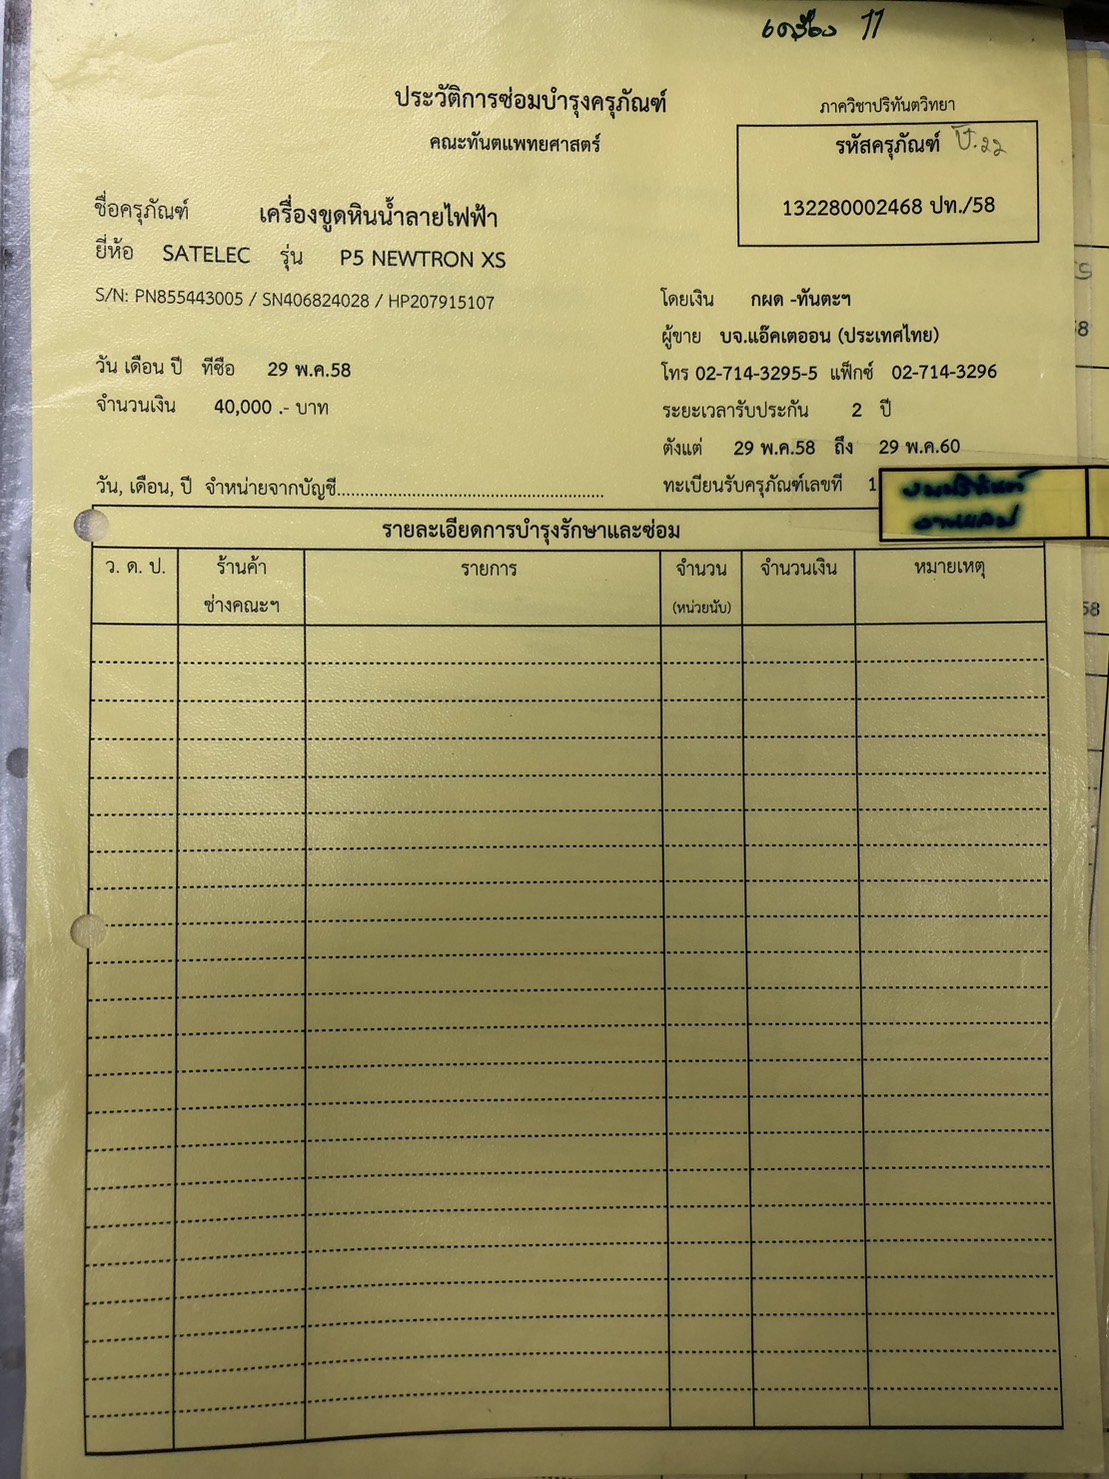 เครื่อง 11
ประวัติการซ่อมบำรุงครุภัณฑ์
คณะทันตแพทยศาสตร์
ภาควิชาปริทันตวิทยา
รหัสครุภัณฑ์ ป.22
132280002468 ปท./58
ชื่อครุภัณฑ์ เครื่องขูดหินน้ำลายไฟฟ้า
ยี่ห้อ SATELEC รุ่น P5 NEWTRON XS
S/N: PN855443005 / SN406824028 / HP207915107
โดยเงิน กผด -ทันตะฯ
ผู้ขาย บจ.แอ๊คเตออน (ประเทศไทย)
วัน เดือน ปี ที่ซื้อ 29 พ.ค.58
โทร 02-714-3295-5 แฟ็กซ์ 02-714-3296
จำนวนเงิน 40,000 .- บาท
ระยะเวลารับประกัน 2 ปี
ตั้งแต่ 29 พ.ค.58 ถึง 29 พ.ค.60
วัน, เดือน, ปี จำหน่ายจากบัญชี
ทะเบียนรับครุภัณฑ์เลขที่ 1
รายละเอียดการบำรุงรักษาและซ่อม
ว. ด. ป. ร้านค้า รายการ จำนวน จำนวนเงิน หมายเหตุ
ช่างคณะฯ (หน่วยนับ)
58